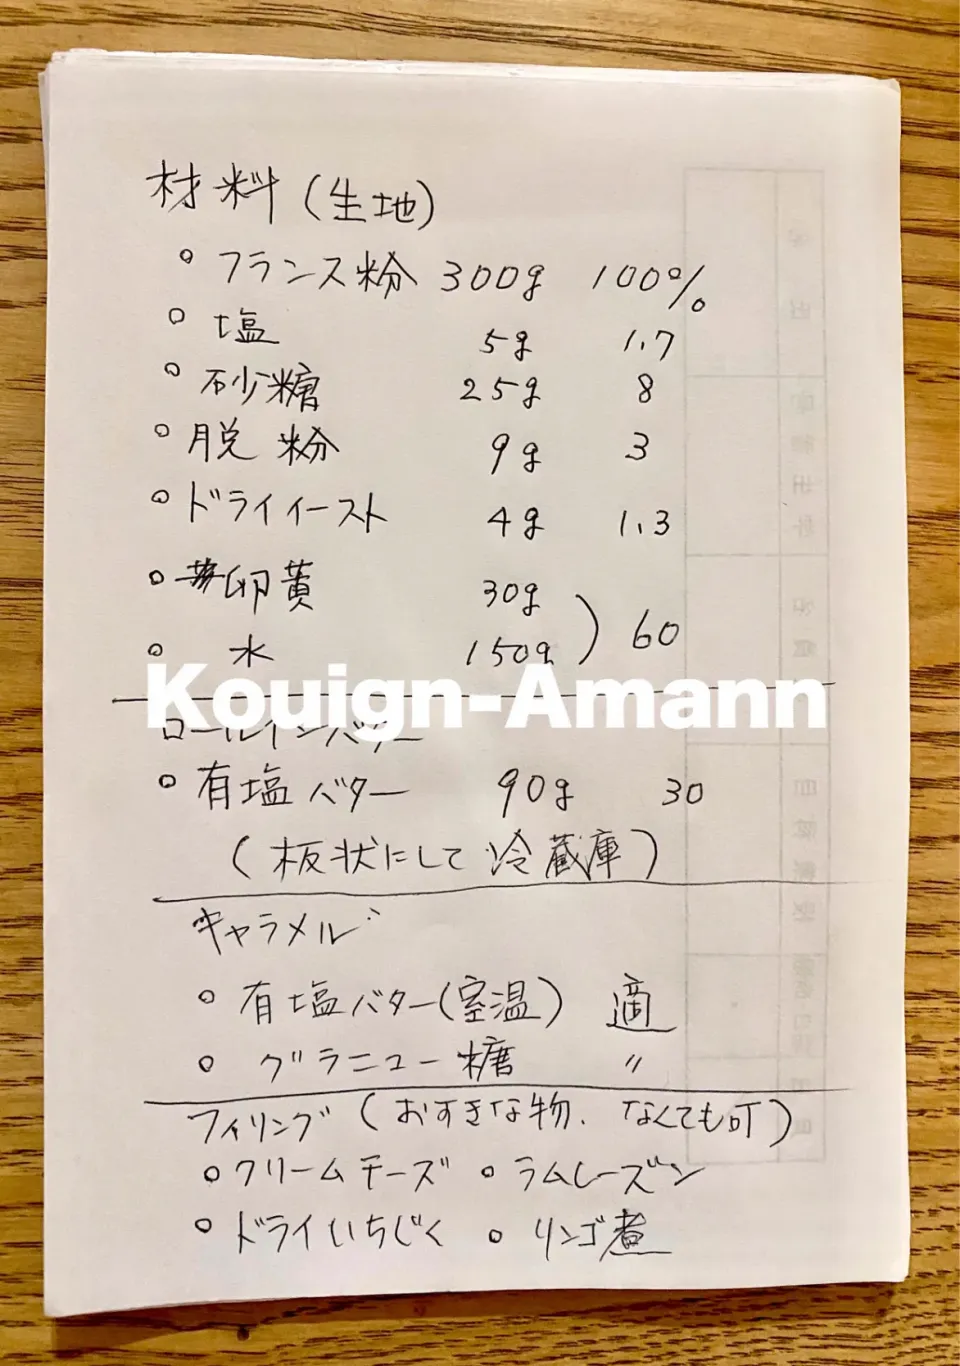 材料(生地)
○ フランス粉 300g 100%
○ 塩 5g 1.7
○ 砂糖 25g 8
○ 脱粉 9g 3
○ ドライイースト 4g 1.3
○ 卵黄 30g
○ 水 150g ) 60
Kouign-Amann
ロールインバター
○ 有塩バター 90g 30
(板状にして冷蔵庫)
キャラメル
○ 有塩バター(室温) 適
○ グラニュー糖 〃
フィリング (おすきな物、なくても可)
○ クリームチーズ ○ ラムレーズン
○ ドライいちじく ○ リンゴ煮